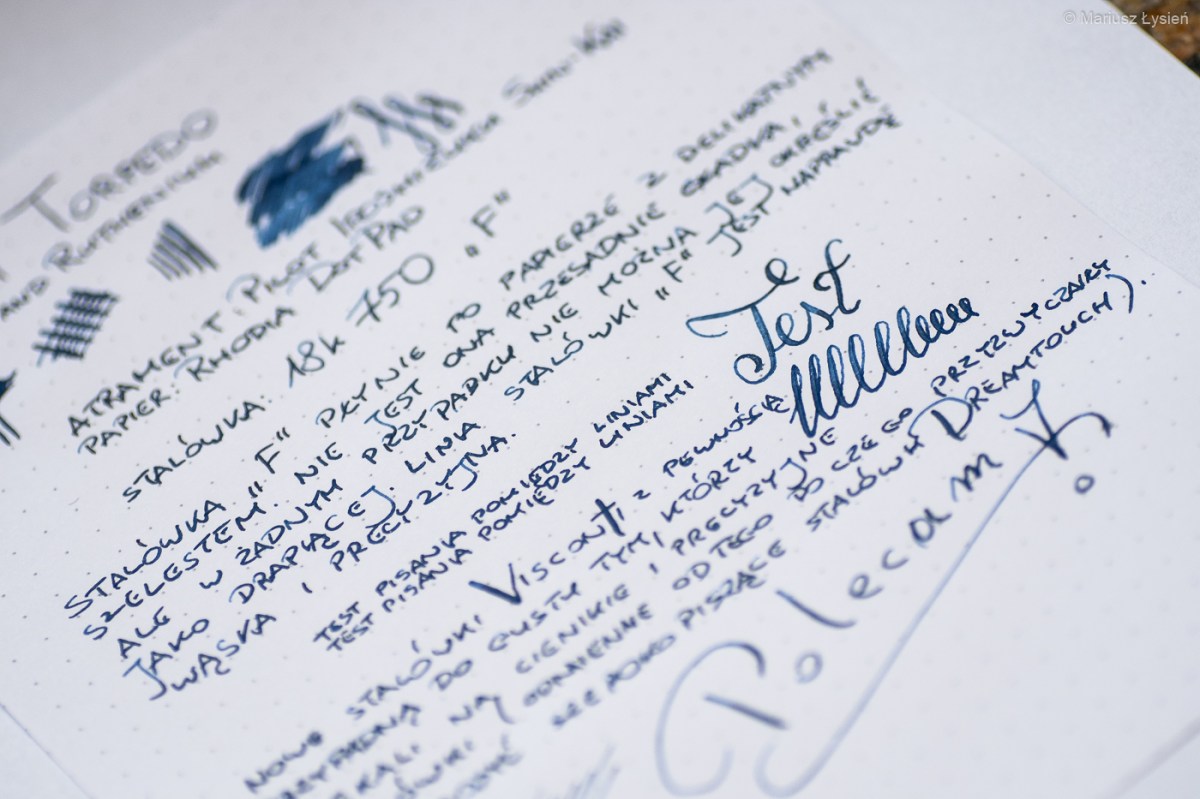 © Mariusz Łysień
TORPEDO
ATRAMENT: PILOT IROSHIZUKU SHIN-KAI
PAPIER: RHODIA DOT PAD
STALÓWKA: 18K 750 „F"
STALÓWKA „F" PŁYNIE PO PAPIERZE Z DELIKATNYM
SZELESTEM. NIE JEST ONA PRZESADNIE GŁADKA,
ALE W ŻADNYM PRZYPADKU NIE MOŻNA JEJ OKREŚLIĆ
JAKO DRAPIĄCEJ. LINIA STALÓWKI „F" JEST NAPRAWDĘ
WĄSKA I PRECYZYJNA.
Test
TEST PISANIA POMIĘDZY LINIAMI
TEST PISANIA POMIĘDZY LINIAMI
NOWE STALÓWKI VISCONTI Z PEWNOŚCIĄ
DO GUSTU TYM, KTÓRZY
NA CIENKIE I PRECYZYJNE
ODMIENNE OD TEGO DO CZEGO PRZYZWYCZAIŁY
PISZĄCE STALÓWKI DREAMTOUCH).
Polecam!